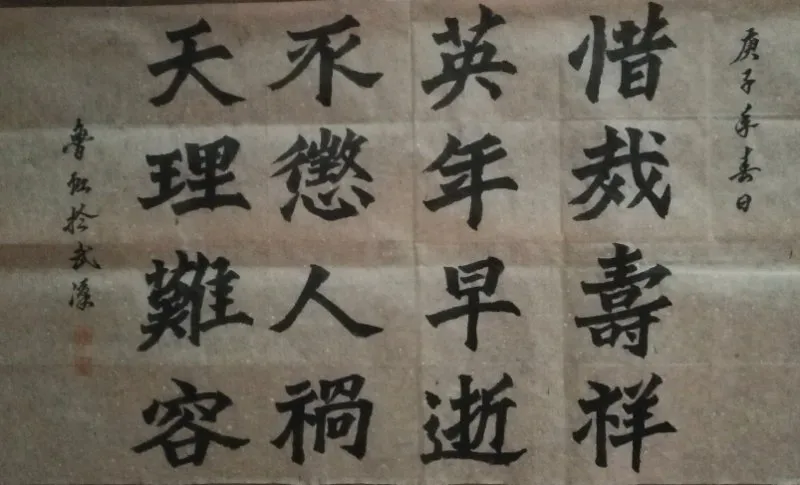 庚子年春日
惜哉壽祥
英年早逝
不懲人禍
天理難容
魯 於武漢